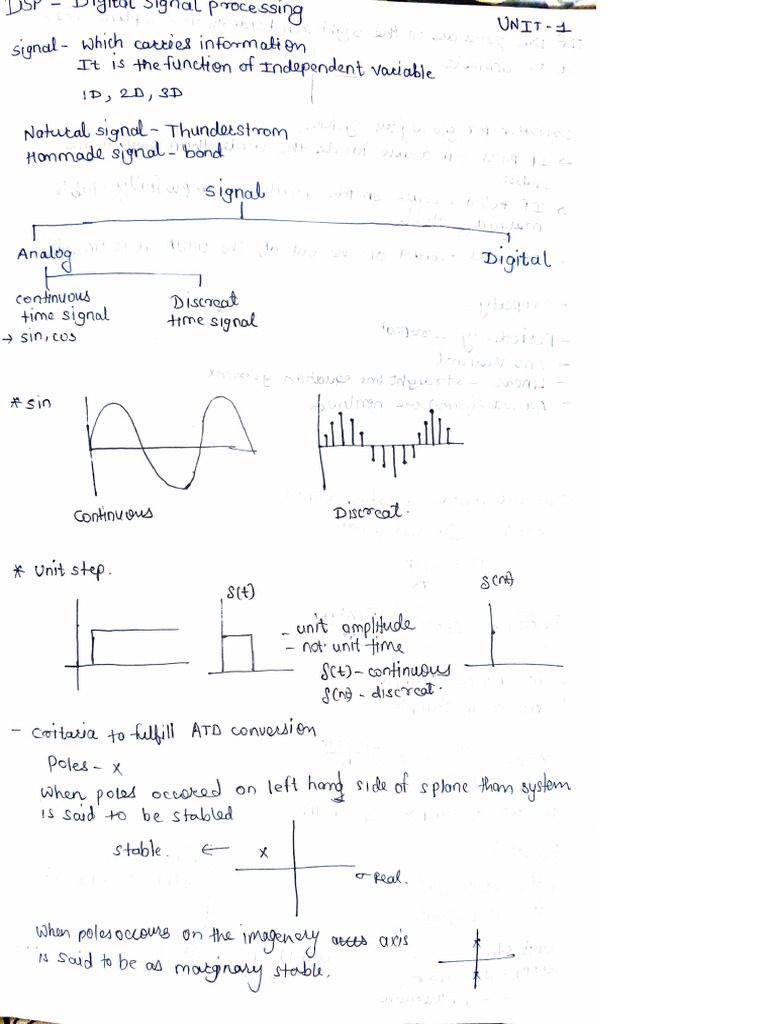 DSP - Digital Signal Processing
UNIT-1
signal - which carries information
It is the function of Independent variable
1D, 2D, 3D
Natural signal - Thunderstrom
Manmade signal - bond
signal
Analog
Digital
continuous
time signal
→ sin, cos
Discreat
time signal
* sin
continuous
Discreat.
* Unit step.
δ(t)
- unit amplitude
- not unit time
δ(t) - continuous
δ(n) - discreat.
δ(n)
- Critaria to fulfill ATD conversion
Poles - x
When poles occored on left hand side of s plane than system
is said to be stabled
stable. ← x
σ Real.
When poles occours on the imagenery axis
is said to be as marginary stable.